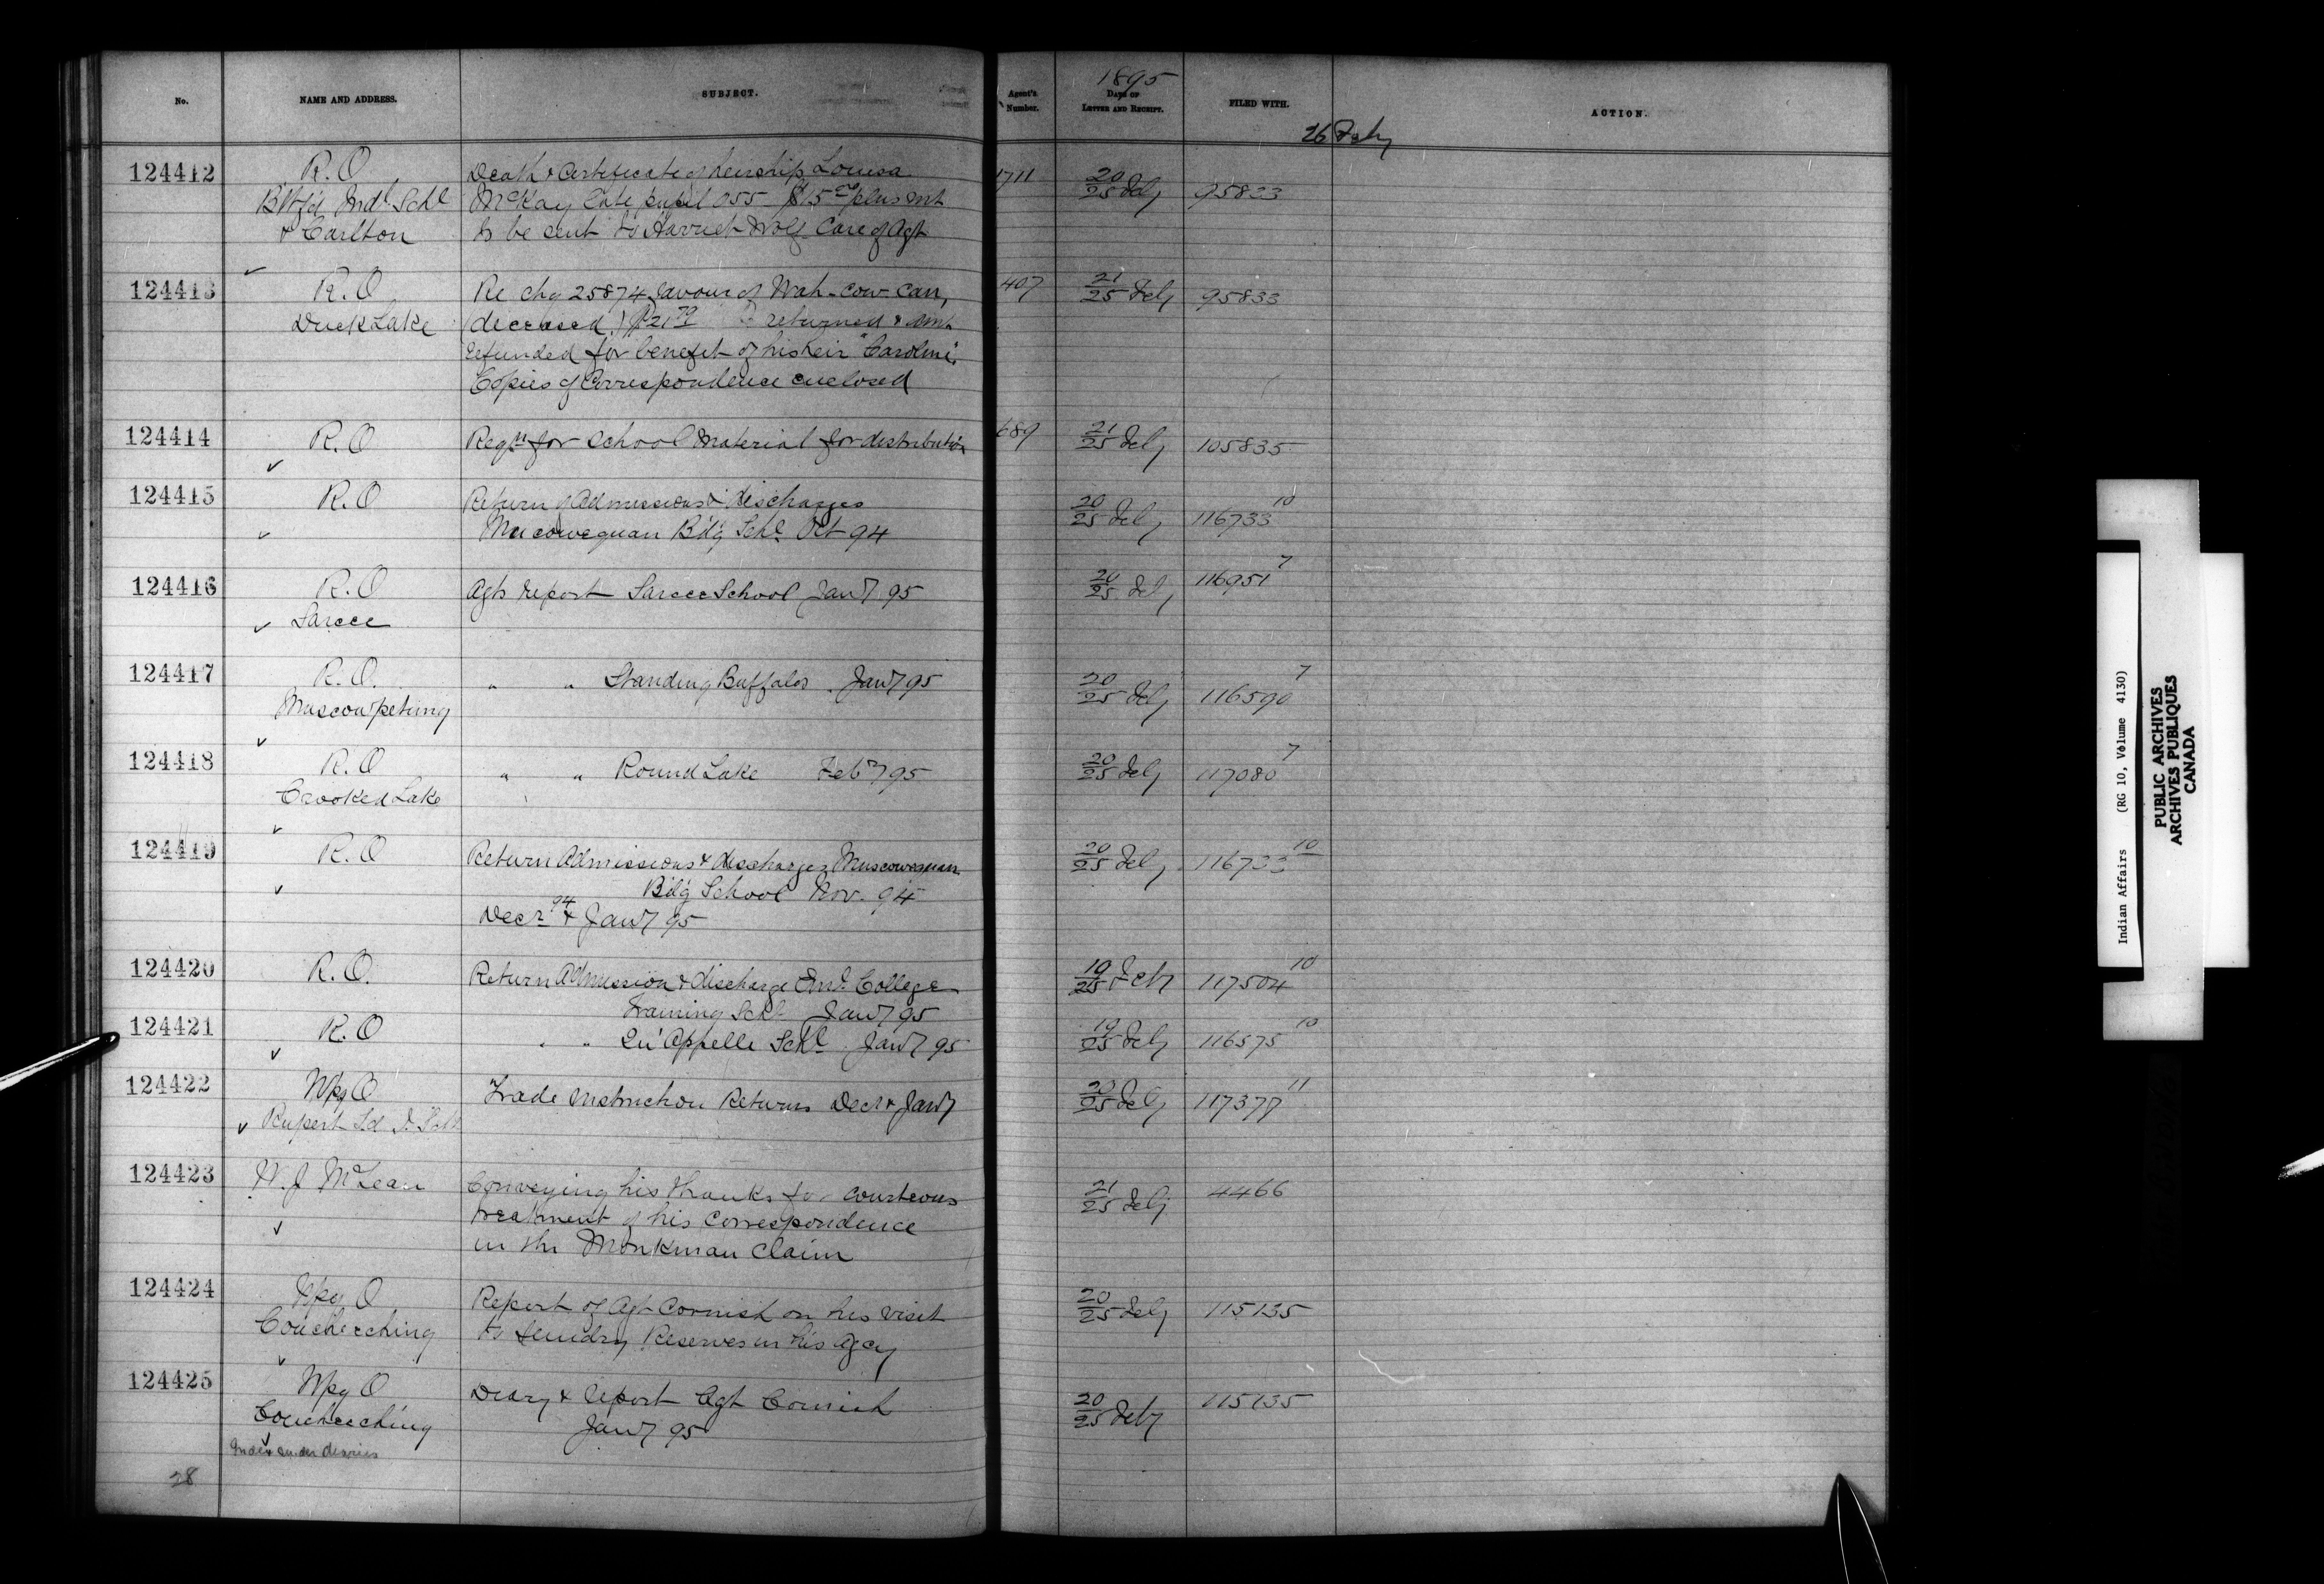 1895
No.
NAME AND ADDRESS.
SUBJECT.
Agent's Number.
DATE OF LETTER AND RECEIPT.
FILED WITH.
ACTION.
26 Feby
124412 R.O Death & Certificate of heirship Louisa 1711 20 95833
Btfd Indl Schl McKay late pupil 055 $15 plus int 25 Feby
& Carlton to be sent to Harriet Wolf Care of Agt
124413 R.O Re chq 25874 favour of Wah-cow-can, 407 21 95833
Duck Lake (deceased) $21 70 returned & amt 25 Feby
refunded for benefit of his heir "Caroline".
Copies of Correspondence enclosed
124414 R.O Reqn for School Material for distribution 689 21/25 Feby 105835
124415 R.O Return of Admissions & discharges 20/25 Feby 116733 10
Muscowequan B'd'g Schl Oct 94
124416 R.O Agts report Sarcee School Jany 95 20/25 Feby 116951 7
Sarcee
124417 R.O. " " Standing Buffalos Jany 95 20/25 Feby 116590 7
Muscowpetung
124418 R.O " " Round Lake Feby 95 20/25 Feby 117080 7
Crooked Lake
124419 R.O Return Admissions & discharges Muscowequan 20/25 Feby 116733 10
B'd'g School Nov. 94
Decr 94 & Jany 95
124420 R.O. Return Admission & discharge Eml. College 10/25 Feb 117504 10
Training Schl Jany 95
124421 R.O " " Qu'Appelle Schl Jany 95 19/25 Feby 116575 10
124422 Wpg O Trade Instruction Returns Decr & Jany 20/25 Feby 117377 11
Rupert Ld I. Schl
124423 W. J McLean Conveying his thanks for courteous 21/25 Feby 4466
treatment of his correspondence
in the Monkman Claim
124424 Wpg O Report of Agt Cornish on his visit 20/25 Feby 115135
Coucheeching to sundry Reserves in his Agcy
124425 Wpg O Diary & report Agt Cornish 20/25 Feby 115135
Coucheeching Jany 95
Index under diaries
28
Indian Affairs (RG 10, Volume 4130)
PUBLIC ARCHIVES
ARCHIVES PUBLIQUES
CANADA